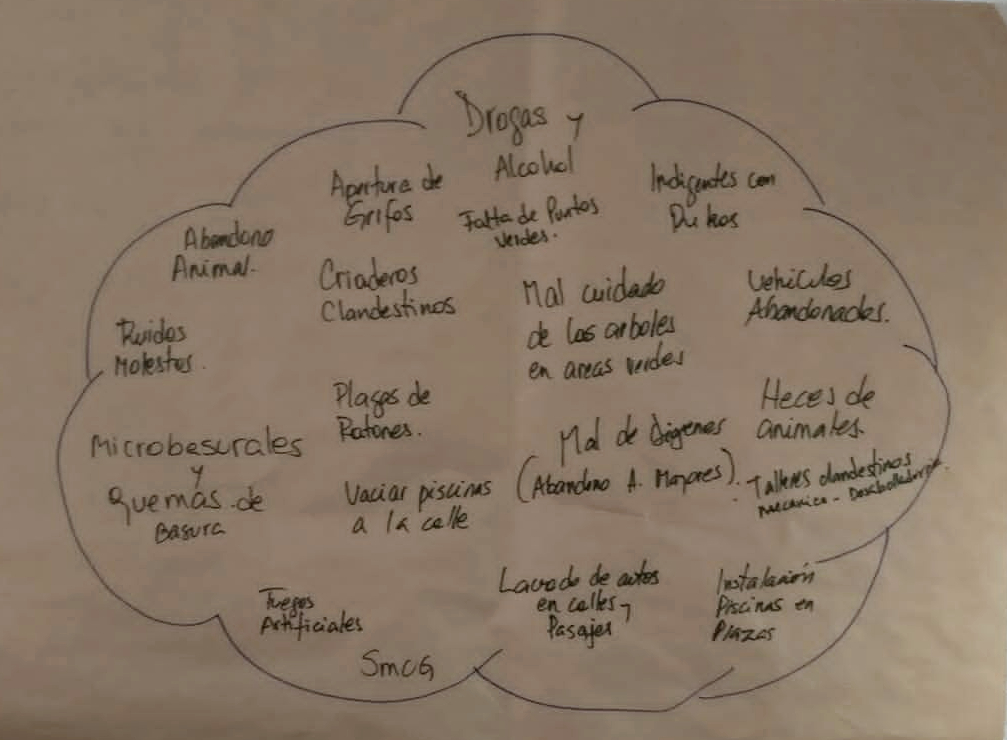 Drogas y
Alcohol
Apertura de
Grifos
Falta de Puntos
Verdes.
Indigentes con
Rukos
Abandono
Animal.
Criaderos
Clandestinos
Mal cuidado
de los arboles
en areas verdes
Vehiculos
Abandonados.
Ruidos
Molestos.
Plagas de
Ratones.
Heces de
animales.
Microbasurales
y
quemas de
Basura
Mal de Diogenes
(Abandono A. Mayores).
Vaciar piscinas
a la calle
. Talleres clandestinos
mecanica -
Fuegos
Artificiales
Lavado de autos
en calles y
Pasajes
Instalación
Piscinas en
Plazas
SMCG